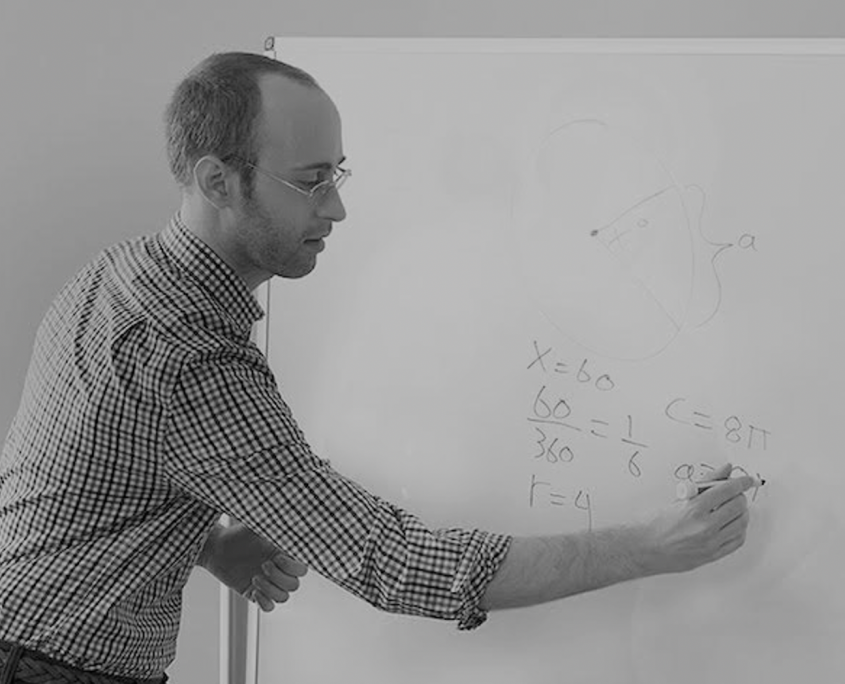 x°
a
X=60
60/360 = 1/6
C=8π
r=4
a=